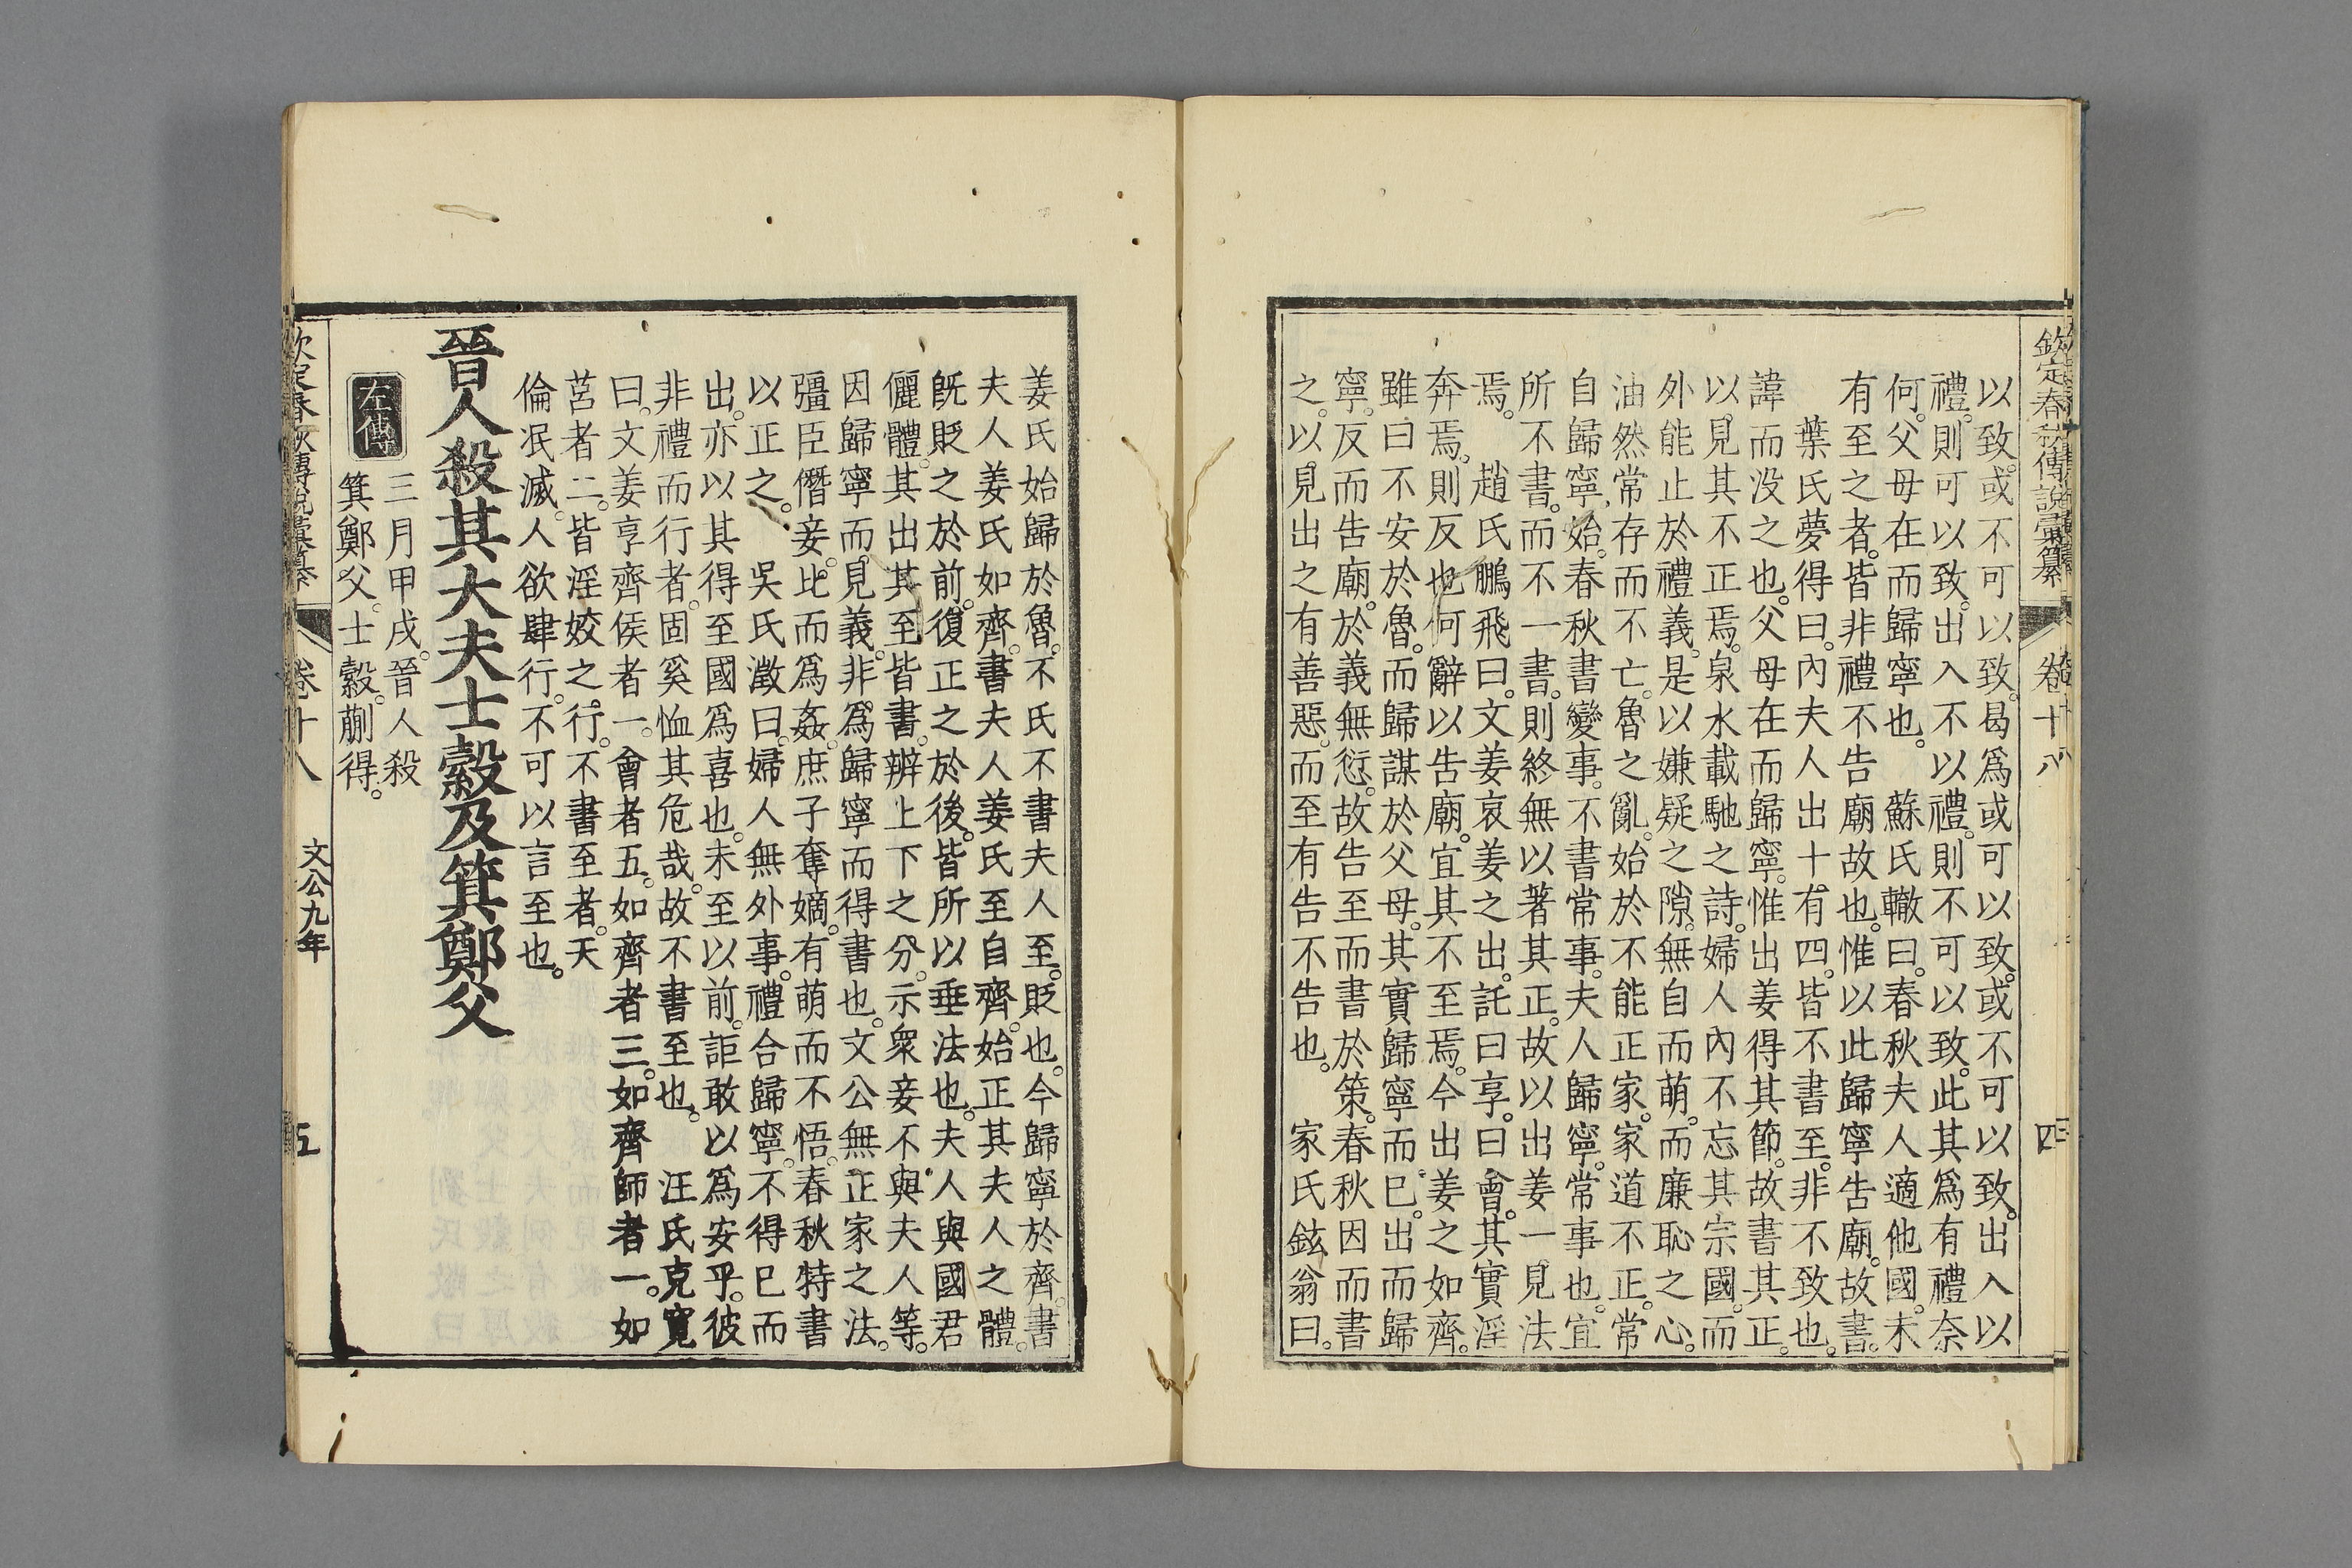 欽定春秋傳說彙纂　卷十八　四
以致。或不可以致。曷爲或可以致。或不可以致。出入以
禮。則可以致。出入不以禮。則不可以致。此其爲有禮奈
何。父母在而歸寧也。　蘇氏轍曰。春秋夫人適他國。未
有至之者。皆非禮不告廟故也。惟以此歸寧告廟。故書。
葉氏夢得曰。內夫人出十有四。皆不書至。非不致也。
諱而没之也。父母在而歸寧。惟出姜得其節。故書其正。
以見其不正焉。泉水載馳之詩。婦人內不忘其宗國。而
外能止於禮義。是以嫌疑之隙。無自而萌。而廉恥之心。
油然常存而不亡。魯之亂。始於不能正家。家道不正。常
自歸寧始。春秋書變事。不書常事。夫人歸寧。常事也。宜
所不書。而不一書。則終無以著其正。故以出姜一見法
焉。　趙氏鵬飛曰。文姜哀姜之出。託曰享。曰會。其實淫
奔焉。則反也何辭以告廟。宜其不至焉。今出姜之如齊。
雖曰不安於魯。而歸謀於父母。其實歸寧而已。出而歸
寧。反而告廟。於義無愆。故告至而書於策。春秋因而書
之。以見出之有善惡。而至有告不告也。　家氏鉉翁曰。
姜氏始歸於魯。不氏不書夫人至。貶也。今歸寧於齊。書
夫人姜氏如齊。書夫人姜氏至自齊。始正其夫人之體。
旣貶之於前。復正之於後。皆所以垂法也。夫人與國君
儷體。其出其至皆書。辨上下之分。示衆妾不與夫人等。
因歸寧而見義。非爲歸寧而得書也。文公無正家之法。
彊臣僭妾。比而爲姦。庶子奪嫡。有萌而不悟。春秋特書
以正之。　吳氏澂曰。婦人無外事。禮合歸寧。不得已而
出。亦以其得至國爲喜也。未至以前。詎敢以爲安乎。彼
非禮而行者。固奚恤其危哉。故不書至也。　汪氏克寬
曰。文姜享齊侯者一。會者五。如齊者三。如齊師者一。如
莒者二。皆淫姣之行。不書至者。天
倫泯滅。人欲肆行。不可以言至也。
晉人殺其大夫士縠及箕鄭父
左傳
三月甲戌。晉人殺
箕鄭父。士縠。蒯得。
欽定春秋傳說彙纂　卷十八　文公九年　五